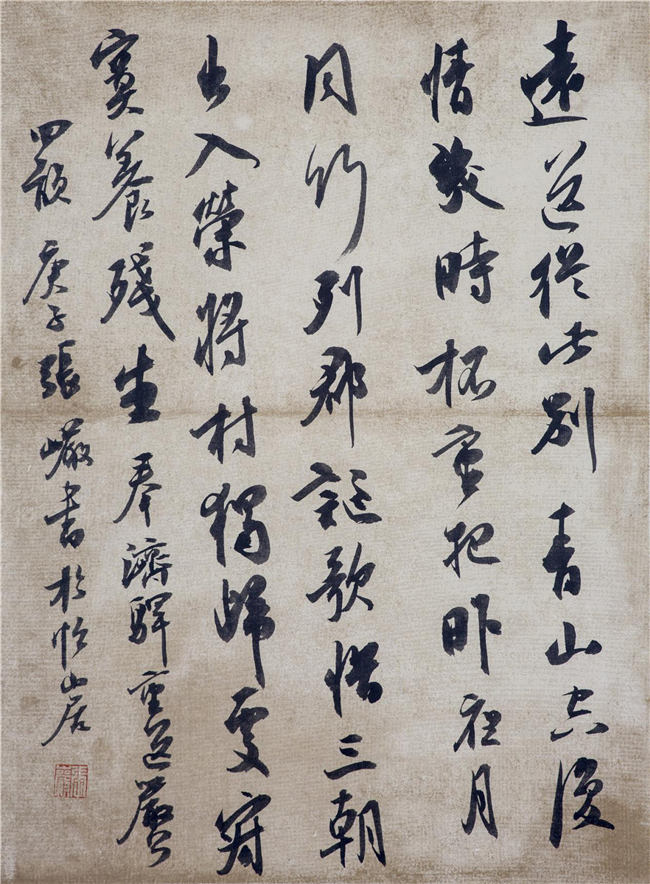 遠送從此別青山空復
情幾時杯重把昨夜月
同行列郡謳歌惜三朝
出入榮將村獨歸處寂
寞養殘生奉濟驛重送嚴公
四韻庚子張巖書於怡山居